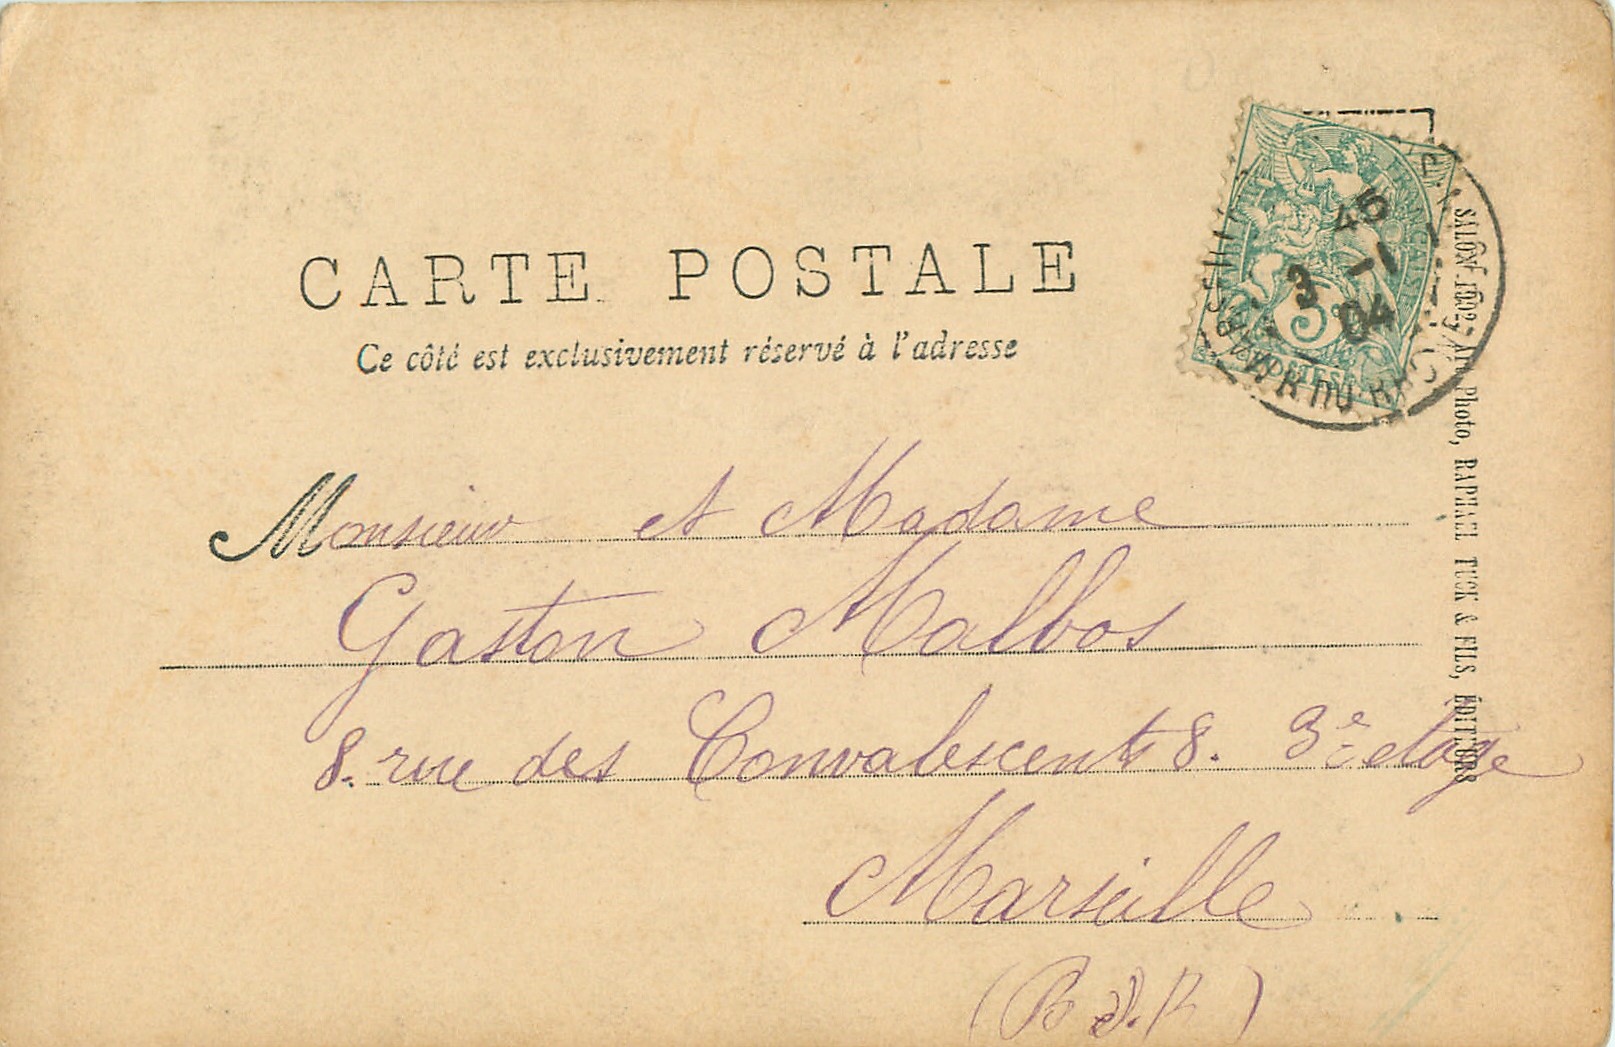 CARTE POSTALE
Ce côté est exclusivement réservé à l'adresse
3 -1
04
5c
POSTES
SALON 1902, Art Photo, RAPHAEL TUCK & FILS, ÉDITEURS
Monsieur et Madame
Gaston Malbos
8. rue des Convalescents 8. 3e etage
Marseille
(B d. R)